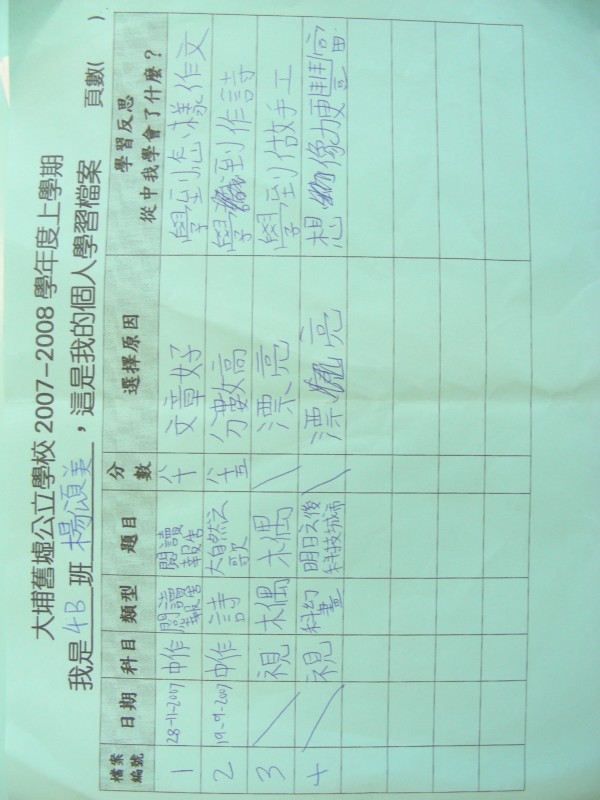 大埔舊墟公立學校 2007-2008 學年度上學期
我是 4B 班 楊頌美，這是我的個人學習檔案 頁數( )
檔案編號 日期 科目 類型 題目 分數 選擇原因 學習反思 從中我學會了什麼？
1 28-11-2007 中作 閱讀報告 閱讀報告 八十 文章好 學到怎樣作文
2 19-9-2007 中作 詩 大自然之歌 八十五 分數高 學到作詩
3 視 木偶 木偶 漂亮 學到做手工
4 視 科幻畫 明日之後科技城市 漂亮 想像力更豐富